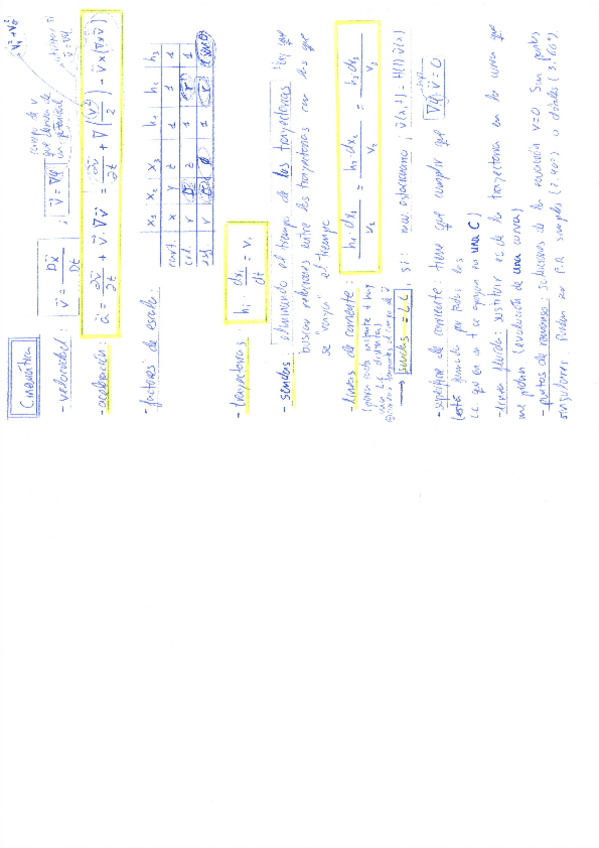 Cinemática
- velocidad: v⃗ = Dx⃗/Dt ; v⃗ = ∇φ campo de v que deriva de un potencial
v₁² + v₂²
- aceleración: a⃗ = ∂v⃗/∂t + v⃗·∇v⃗ = ∂v⃗/∂t + ∇(v²/2) - v⃗ x (∇xv⃗)
- factores de escala:
x₁ x₂ x₃ h₁ h₂ h₃
cart. x y z 1 1 1
cil. r θ z 1 r 1
esf r θ
- trayectorias: hᵢ · dxᵢ/dt = vᵢ
- sendas: eliminando el tiempo de las trayectorias
buscar relaciones entre las trayectorias con las que
se "vaya" el tiempo
- líneas de corriente: h₁ dx₁/v₁ = h₂ dx₂/v₂ = h₃ dx₃/v₃
(para cada instante t hay
una L.C distinta)
→ sendas = L.C , si: mov. estacionario ;
- superficie de corriente: tiene que cumplir que ∇φ·v⃗ = 0
(está formada por todas las
L.C. que en un t se apoyan en una C)
- línea fluida: sustituir ec de la trayectoria en la curva que
me pidan (evolución de una curva)
- puntos de remanso: soluciones de la ecuación v=0 Son puntos
singulares. Pueden ser P.R simples